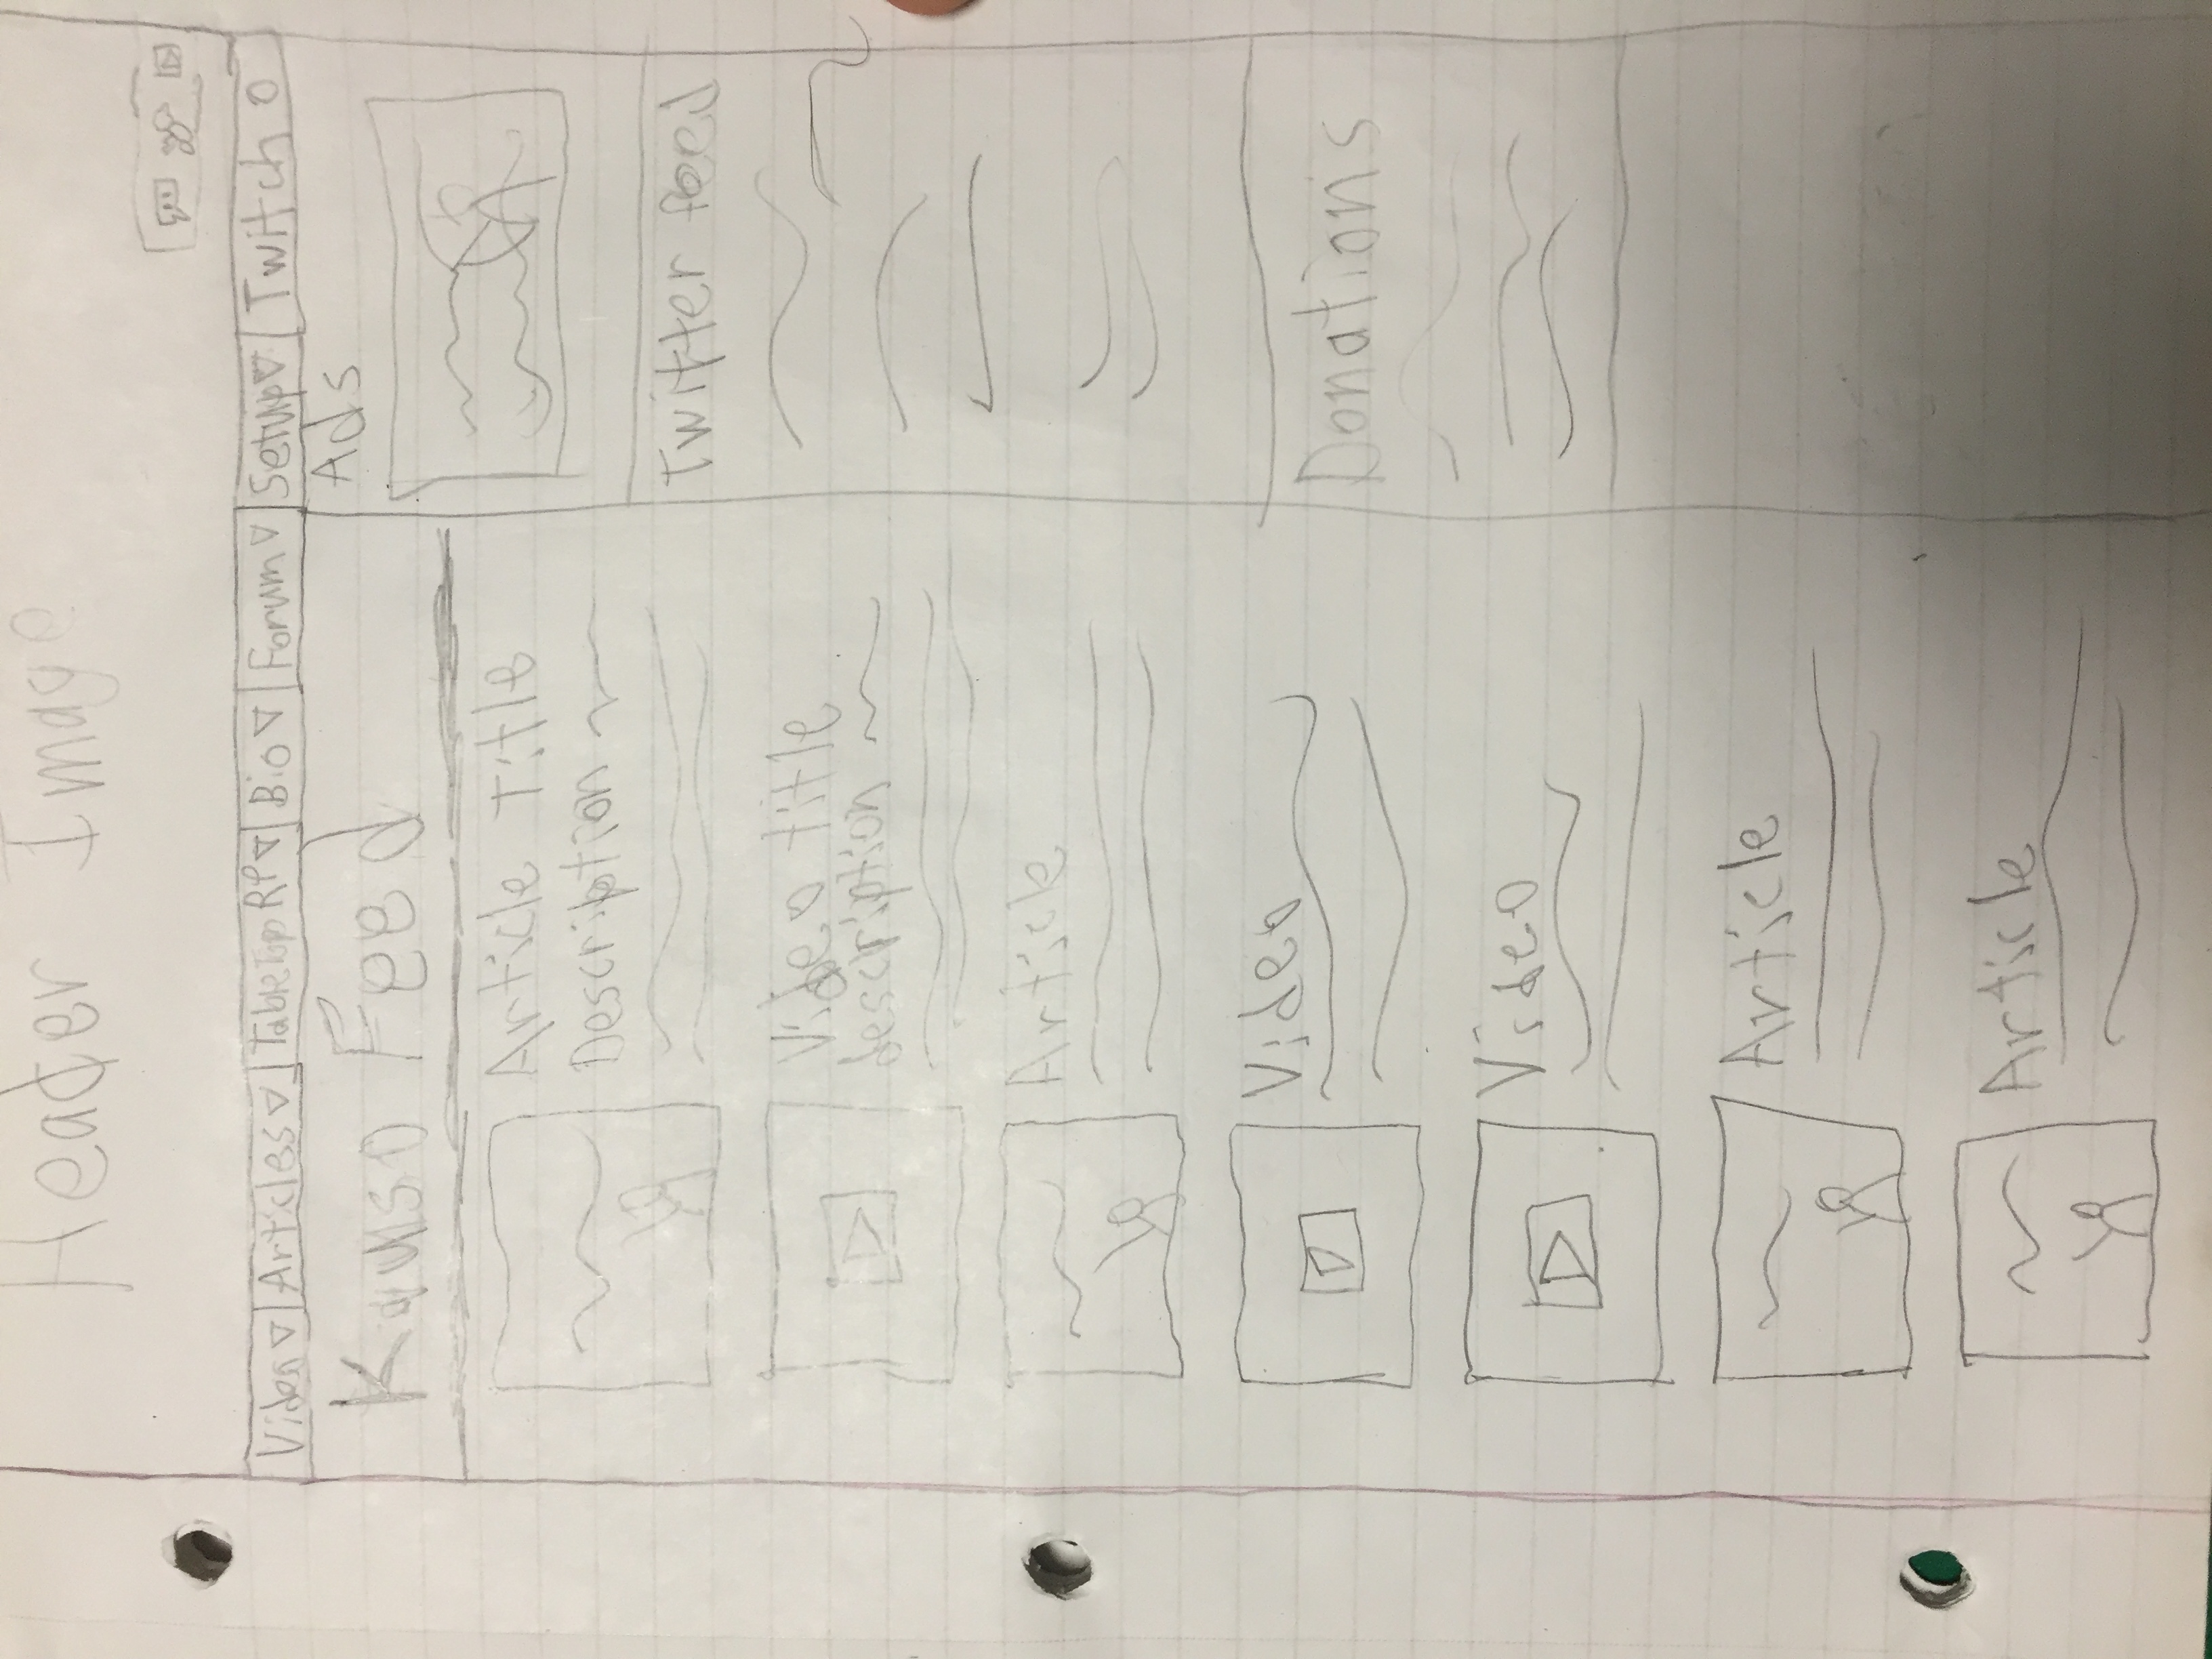 Header Image
Video Articles TableTop RP Bio Forum Setup Twitch
Feed
Article Title
Description
Video title
description
Article
Video
Video
Article
Article
Ads
Twitter feed
Donations